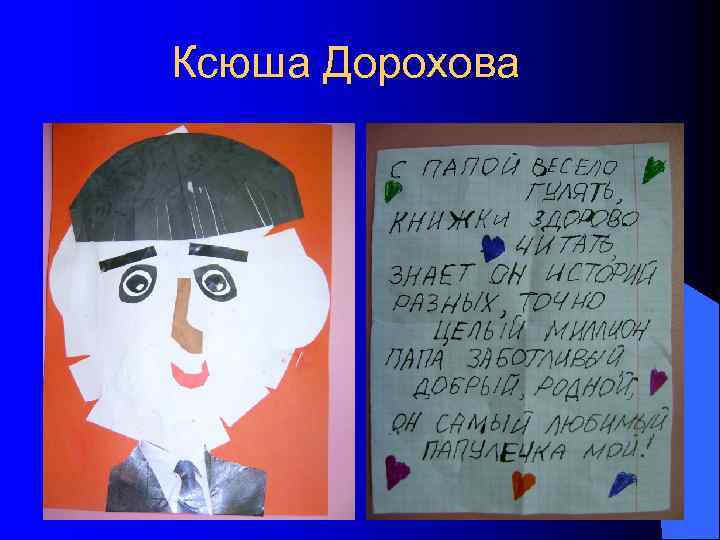 Ксюша Дорохова
С ПАПОЙ ВЕСЕЛО
ГУЛЯТЬ,
КНИЖКИ ЗДОРОВО
ЧИТАТЬ,
ЗНАЕТ ОН ИСТОРИЙ
РАЗНЫХ, ТОЧНО
ЦЕЛЫЙ МИЛЛИОН
ПАПА ЗАБОТЛИВЫЙ
ДОБРЫЙ, РОДНОЙ,
ОН САМЫЙ ЛЮБИМЫЙ
ПАПУЛЕЧКА МОЙ!